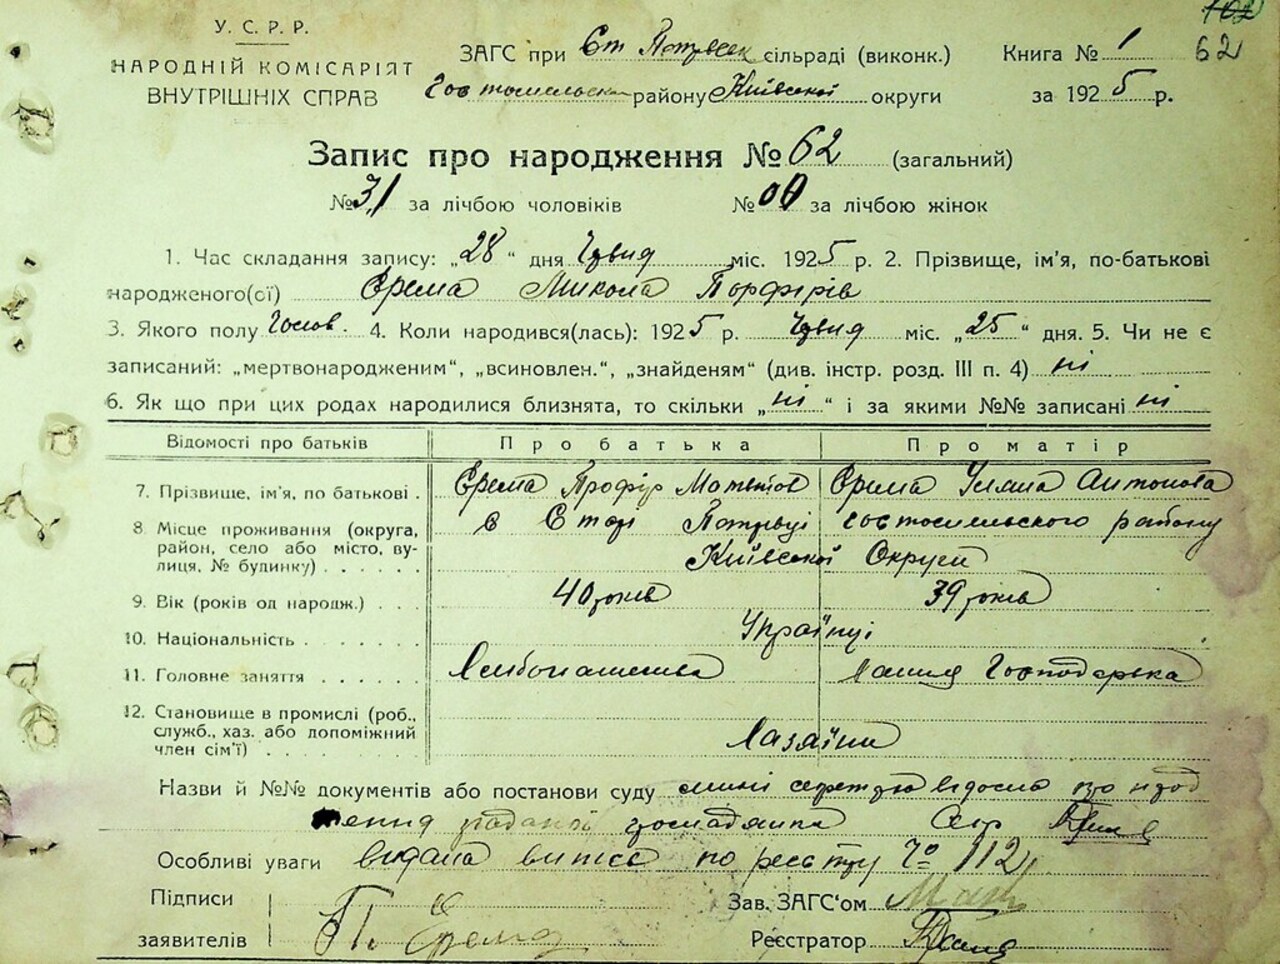 102
62
У. С. Р. Р.
НАРОДНІЙ КОМІСАРІЯТ
ВНУТРІШНІХ СПРАВ
ЗАГС при Ст Петрівськ сільраді (виконк.) Книга № 1
району Київської округи за 1925 р.
Запис про народження № 62 (загальний)
№ 31 за лічбою чоловіків № 00 за лічбою жінок
1. Час складання запису: „28“ дня міс. 1925 р. 2. Прізвище, ім'я, по-батькові
народженого(ої) Єрема Микола Порфірів
3. Якого полу Чолов. 4. Коли народився(лась): 1925 р. міс. „25“ дня. 5. Чи не є
записаний: „мертвонародженим“, „всиновлен.“, „знайденям“ (див. інстр. розд. III п. 4) ні
6. Як що при цих родах народилися близнята, то скільки „ні“ і за якими №№ записані ні
Відомості про батьків Про батька Про матір
7. Прізвище, ім'я, по батькові . Єрема Профір Єрема Уляна Антонова
8. Місце проживання (округа, район, село або місто, вулиця, № будинку) . . . . . . в Стар Петрівці гостомельського району
Київської Округи
9. Вік (років од народж.) . . . 40 років 39 років
10. Національність . . . . . . Українці
11. Головне заняття . . . . . . Хлібопашетва Господарька
12. Становище в промислі (роб., служб., хаз. або допоміжний член сім'ї) . . . . Хазяїни
Назви й №№ документів або постанови суду
громадянка
Особливі уваги видана випис по реєстру № 112
Підписи
заявителів П. Єрема
Зав. ЗАГС‘ом
Реєстратор